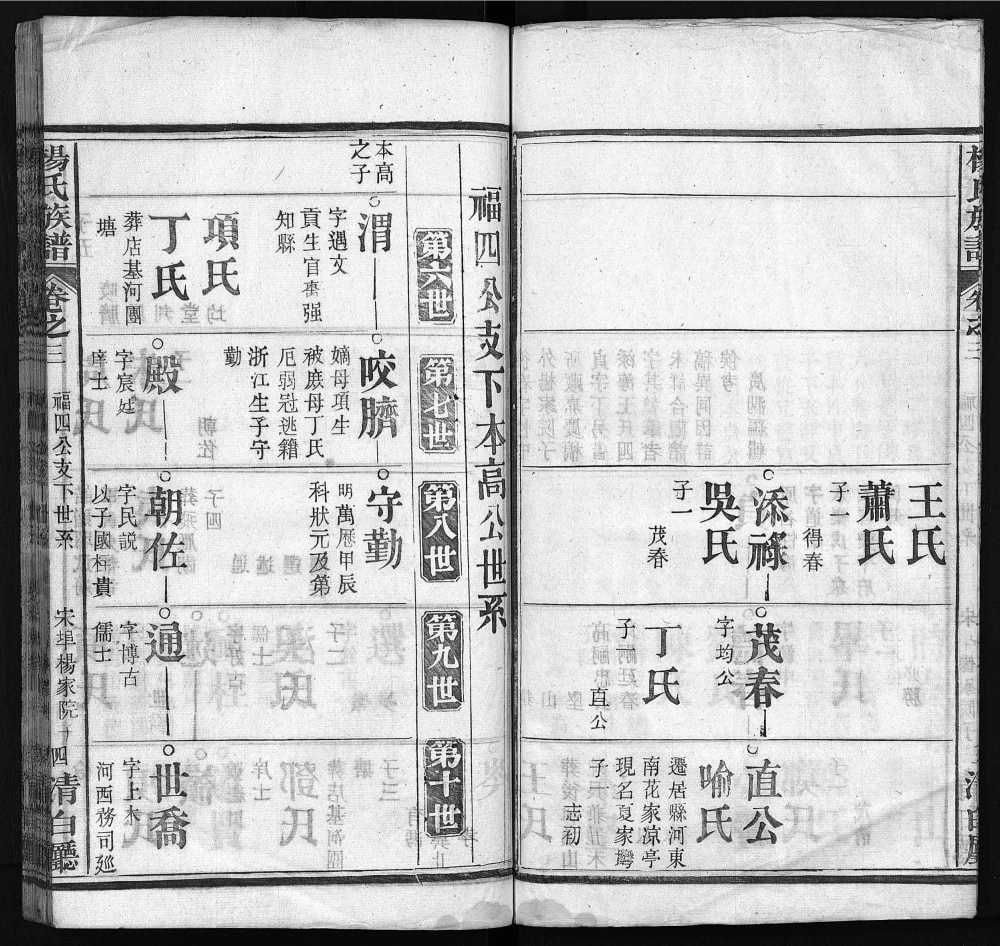 王氏
蕭氏
子一
得春
添祿
吳氏
子一
茂春
茂春
字均公
丁氏
子一
直公
直公
喻氏
遷居縣河東
南花家凉亭
現名夏家灣
子一
志礽
福四公支下本高公世系
第六世
第七世
第八世
第九世
第十世
本高
之子
渭
字遇文
貢生官棗强
知縣
項氏
丁氏
葬店基河團
塘
咬臍
嫡母項生
被庶母丁氏
厄弱冠逃籍
浙江生子守
勤
殿
字宸廷
庠士
守勤
明萬曆甲辰
科狀元及第
朝佐
字民説
以子國楨貴
通
字博古
儒士
世喬
字上木
河西務司廵
楊氏族譜
卷之三
福四公支下世系
宋埠楊家院
十四
清白廳